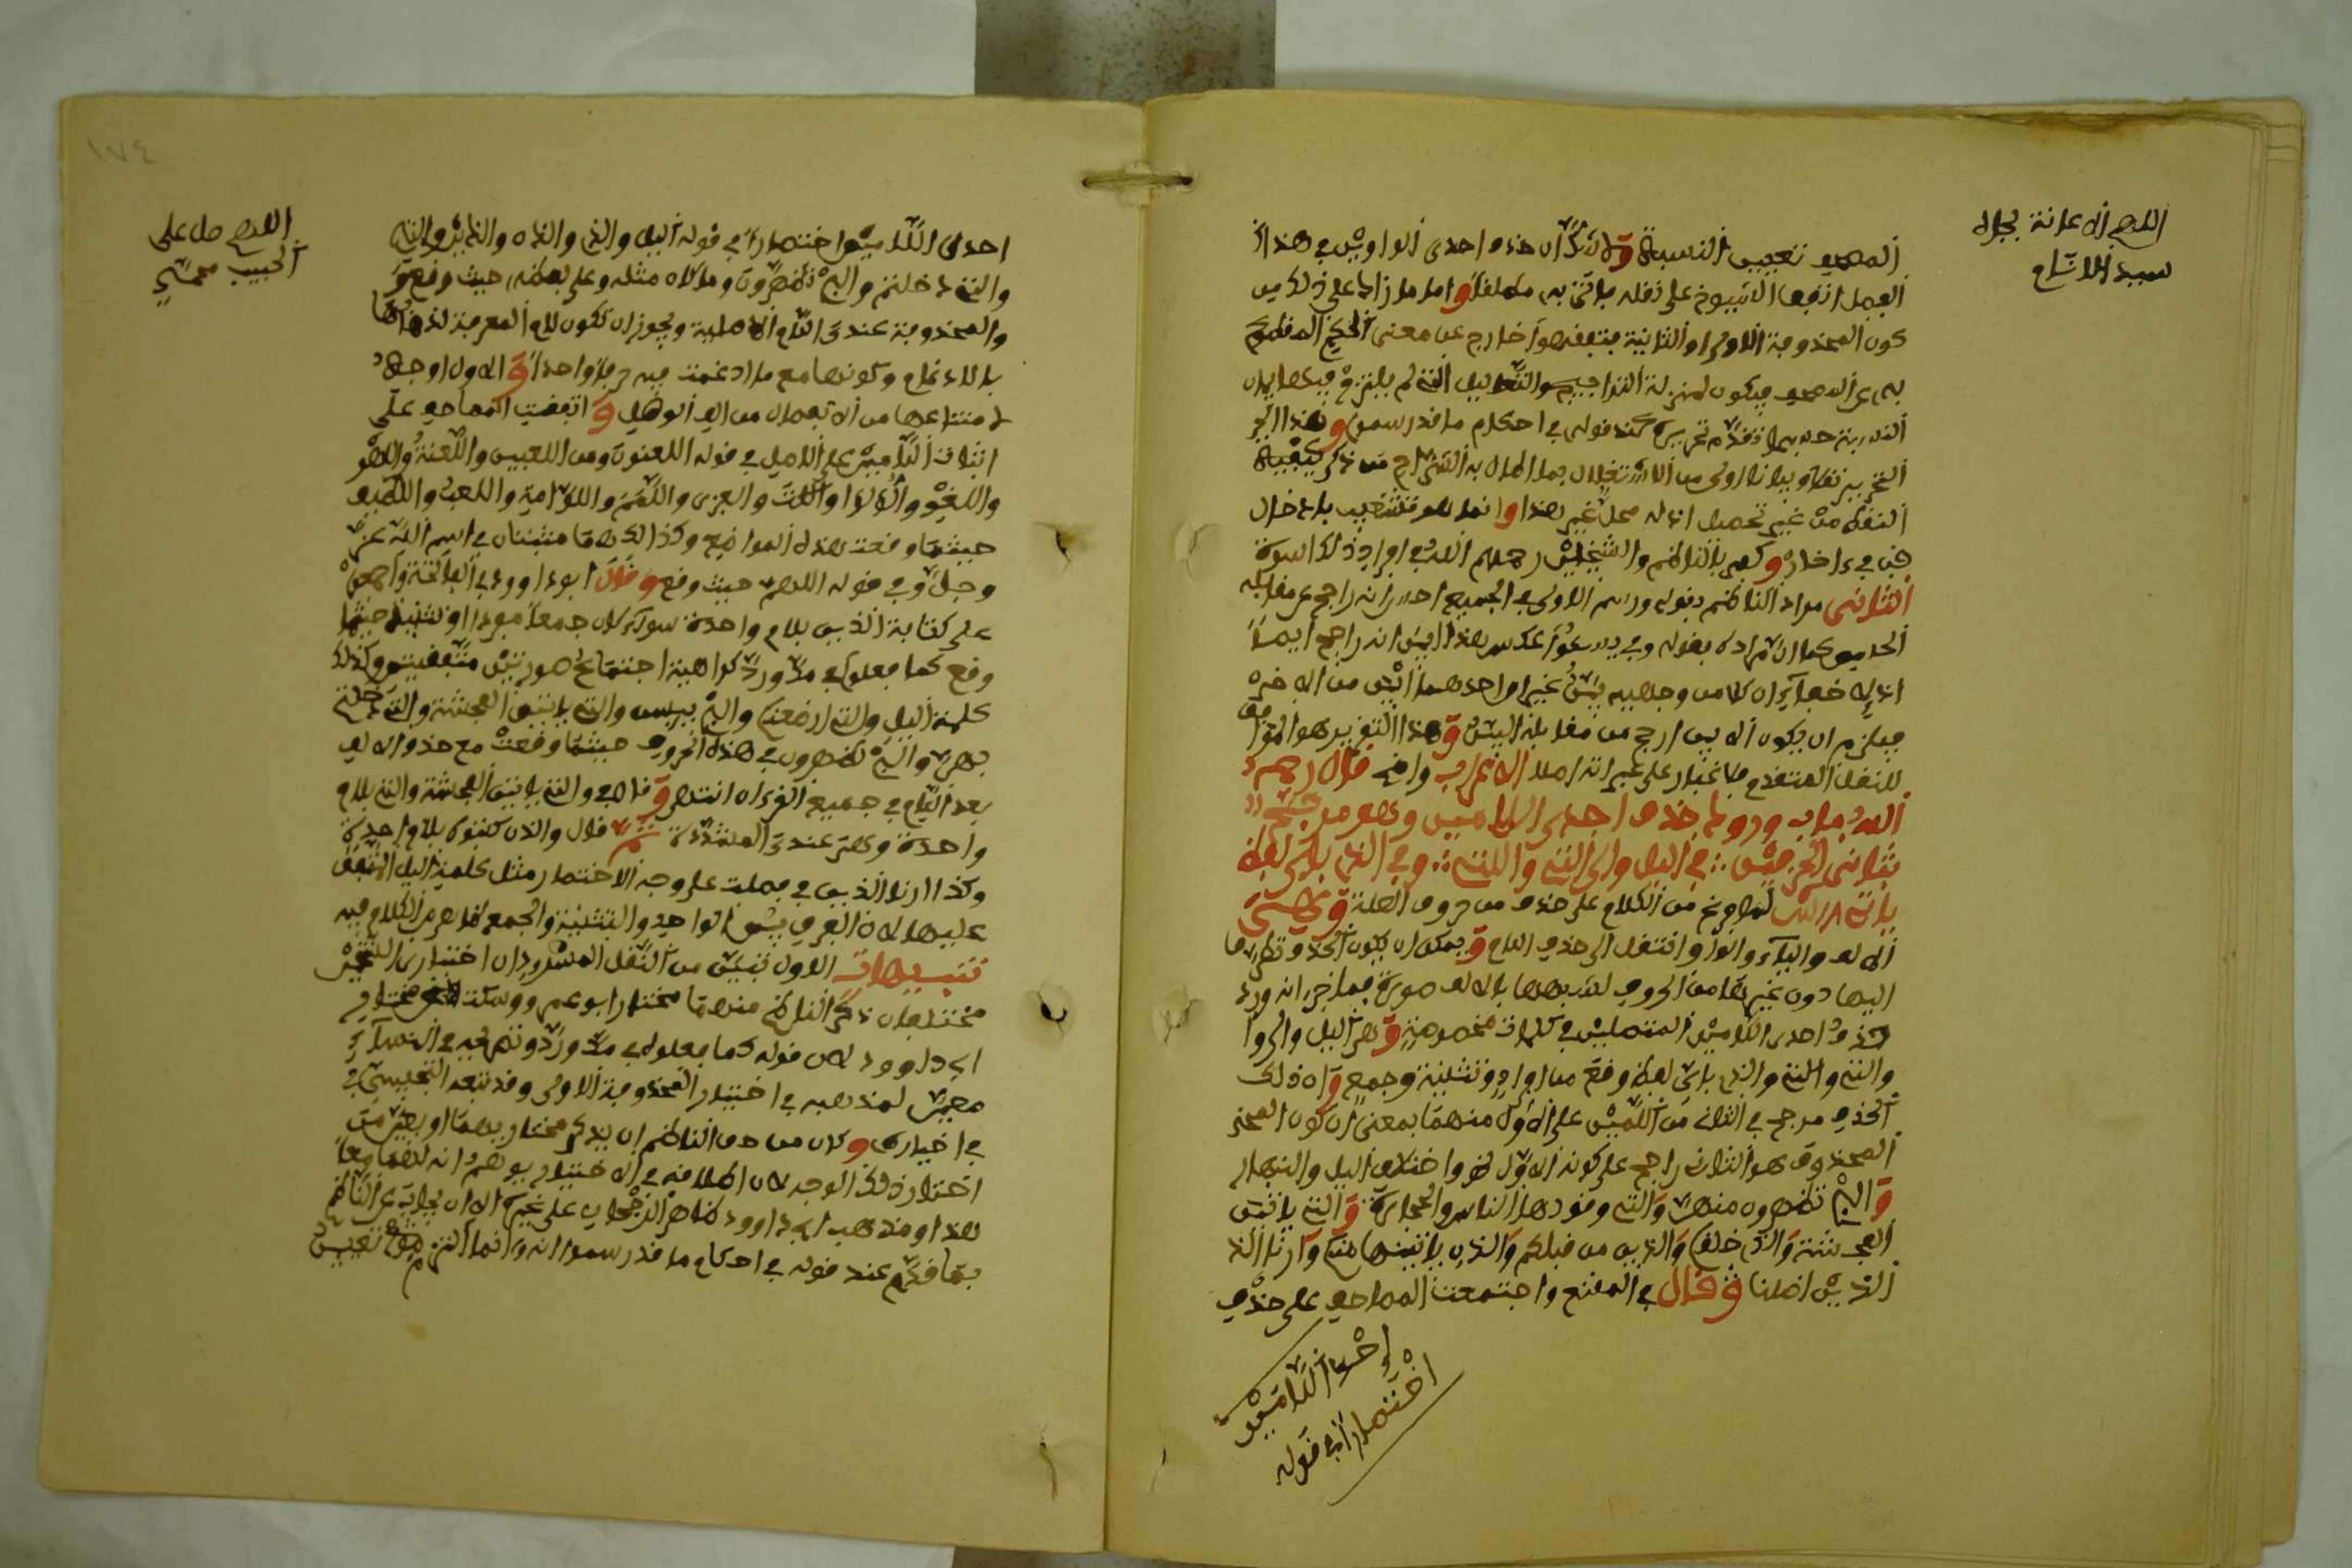 اللهم الاعانة بجاه
سيد الانام
المصحف تعيين النسبة ولا شك ان حذف احدى الواوين في هذا
العمل اتفق الشيوخ على نقله فاتى به مطلقا واما ما زاد على ذلك من
كون المحذوفة الاولى او الثانية فتفقه خارج عن معنى الحكم المنقول
به عن المصحف فيكون بمنزلة التواجيه والتعاليل التي لم يلتزم
حسبما تقدم تحريره عند قوله في احكام ما قد رسموا وهذا
التحرير نقلا وبيانا اولى من الاشتغال بما اطال به الشراح من ذكر كيفية
النقط من غير تحصيل اذ له محل غير هذا وانما هو تشغيب بادخال
فن في ءاخر وكفى بالناظم والشيخين رحمهم الله في افراد ذلك اسوة
الثاني مراد الناظم بقوله ورسم الاولى في الجميع احسن انه راجح عن مقابله
الحامي كما ان مراده بقوله وفي يسوءوا عكس هذا ابين انه راجح ايضا
اذ لا خفاء ان كلا من وجهيه بين غير ان احدهما ابين من الاخر
فيلزم ان يكون الابين ارجح من مقابله البين وهذا التقرير هو الموافق
للنقل المتقدم فلا غبار على غيرانه املا الاضراب والله قال رحمه
الله باب ورود حذف احدى اللامين وهو مرجح
بثاني الحرفين في اليل والئي التي واللتي وفي الذي باي لفظ
ياتي لما فرغ من الكلام على حذف من حروف العلة وهي
الالف والياء والواو انتقل الى حذف اللام ويمكن ان يكون الحذف تطرق
اليها دون غيرها من الحروف لشبهها بالالف صورة فاخبر انه ورد
حذف احدى اللامين المتصلين في كلمات مخصوصة وهي اليل والئي
والتي والتي والذي باي لفظ وقع من افراد وتثنية وجمع وان ذلك
الحذف مرجح في الثاني من اللامين على الاول منهما بمعنى ان كون
المحذوف هو الثاني راجح على كونه الاول نحو واختلاف اليل والنهار
والئي تظهرون منهن والتي وقودها الناس والحجارة والتي ياتين
الفحشة والذي خلقكم والذين من قبلكم والذان ياتينها منكم وارنا الذين
الذين اضلنا وقال في المقنع واجتمعت المصاحف على حذف
احدى اللامين
اختصارا في قوله
١٧٤
اللهم صل على
الحبيب محمد
احدى اللامين اختصارا في قوله اليل والذي والذان والذين والتي
والتي دخلتم والئي تظهرون وما كان مثله وعلى لفظه حيث وقع
والمحذوفة عندي اللام الاصلية ويجوز ان تكون لام المعرفة لذهابها
بالادغام وكونها مع ما ادغمت فيه حرفا واحدا والاول اوجه
لامتناعها من الانفصال من الف الوصل واتفقت المصاحف على
اثبات اللامين على الاصل في قوله اللعنون ومن اللعبين واللعنة واللهو
واللغو واللؤلؤ واللت والعزى واللمم واللوامة واللعب واللطيف
حيثما وقعت هذه المواضع وكذا الا هما مثبتتان في اسم الله عز
وجل وفي قوله اللهم حيث وقع وقال ابو داوود في الفاتحة
على كتابة الذين بلام واحدة سواء كان جمعا مفردا او تثنية حيثما
وقع كما فعلوا في كراهية اجتماع صورتين متفقتين وكذلك
كلمة اليل والتي ارضعنكم والئي يئسن والتي ياتين الفحشة والتي دخلتم
بهن والئي تظهرون في هذه الحروف حيثما وقعت مع حذف الالف
بعد اللام في جميع القرءان انتهى والتي ياتين الفحشة والتي بلام
واحدة وهي عندي المشددة ثم قال والذان كتبوه بلام واحدة
وكذا ارنا الذين في فصلت على وجه الاختصار مثل كلمة اليل المتفق
عليها لان الفرق بين الواحد والتثنية والجمع ظاهر في الكلام فيه
تنبيهات الاول تبين من النقل المسرود ان اختياري الشيخين
مختلفان ذكر الناظم منهما مختار ابي عمرو وسكت عن مختار
ابي داوود لان قوله كما فعلوا في
معين لمذهبه في اختيار المحذوفة الاولى وقد تبعه التجيبي في
في اختياري وكان من حق الناظم ان يذكر مختاريهما او يعين من
اختار ذلك الوجه لان اطلاقه في الاختيار يوهم انه لهما معا
هذا ومذهب ابي داوود ظاهر الرجحان على غيره الا ان يجاب عن الناظم
بما قدم عند قوله في احكام ما قد رسموا انه انما التزم تعيين